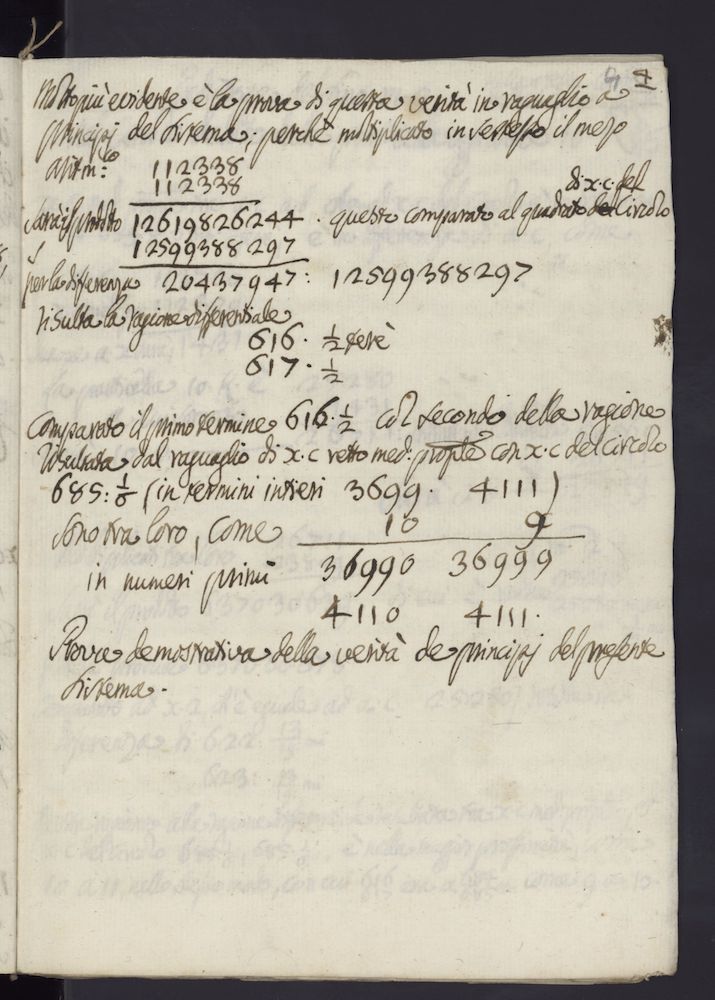 4
Molto più evidente è la prova di questa verità in raguaglio a
principj del sistema; perchè moltiplicato in se stesso il mezo
aritm:º 112338
112338
di x. c. del
sarà il prodotto 12619826244. questo comparato al quadrato del Circolo
12599388297
per la differenza 20437947: 12599388297
risulta la ragione differentiale
616. 1/2
617. 1/2
Comparato il primo termine 616. 1/2 col secondo della ragione
risultata dal raguaglio di x. c retto med. prople con x. c del circolo
685: 1/6 (in termini intieri 3699. 4111)
sono tra loro, come 10 9
36990 36999
in numeri primi
4110 4111.
Prova demostrativa della verità de principj del presente
sistema.